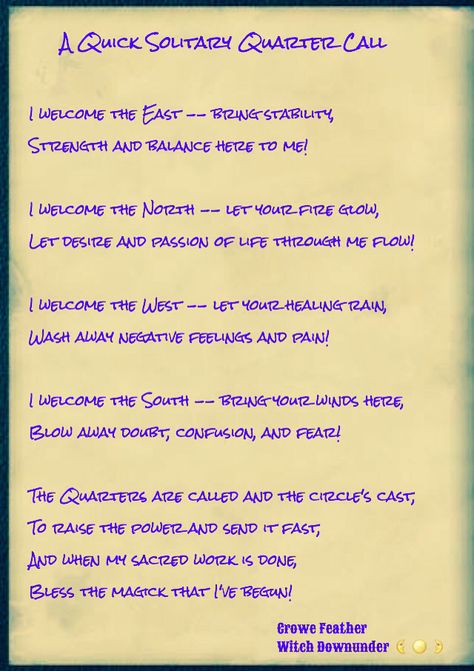 A Quick Solitary Quarter Call
I welcome the East -- bring stability,
Strength and balance here to me!
I welcome the North -- let your fire glow,
Let desire and passion of life through me flow!
I welcome the West -- let your healing rain,
Wash away negative feelings and pain!
I welcome the South -- bring your winds here,
Blow away doubt, confusion, and fear!
The Quarters are called and the circle's cast,
To raise the power and send it fast,
And when my sacred work is done,
Bless the magick that I've begun!
Crowe Feather
Witch Downunder